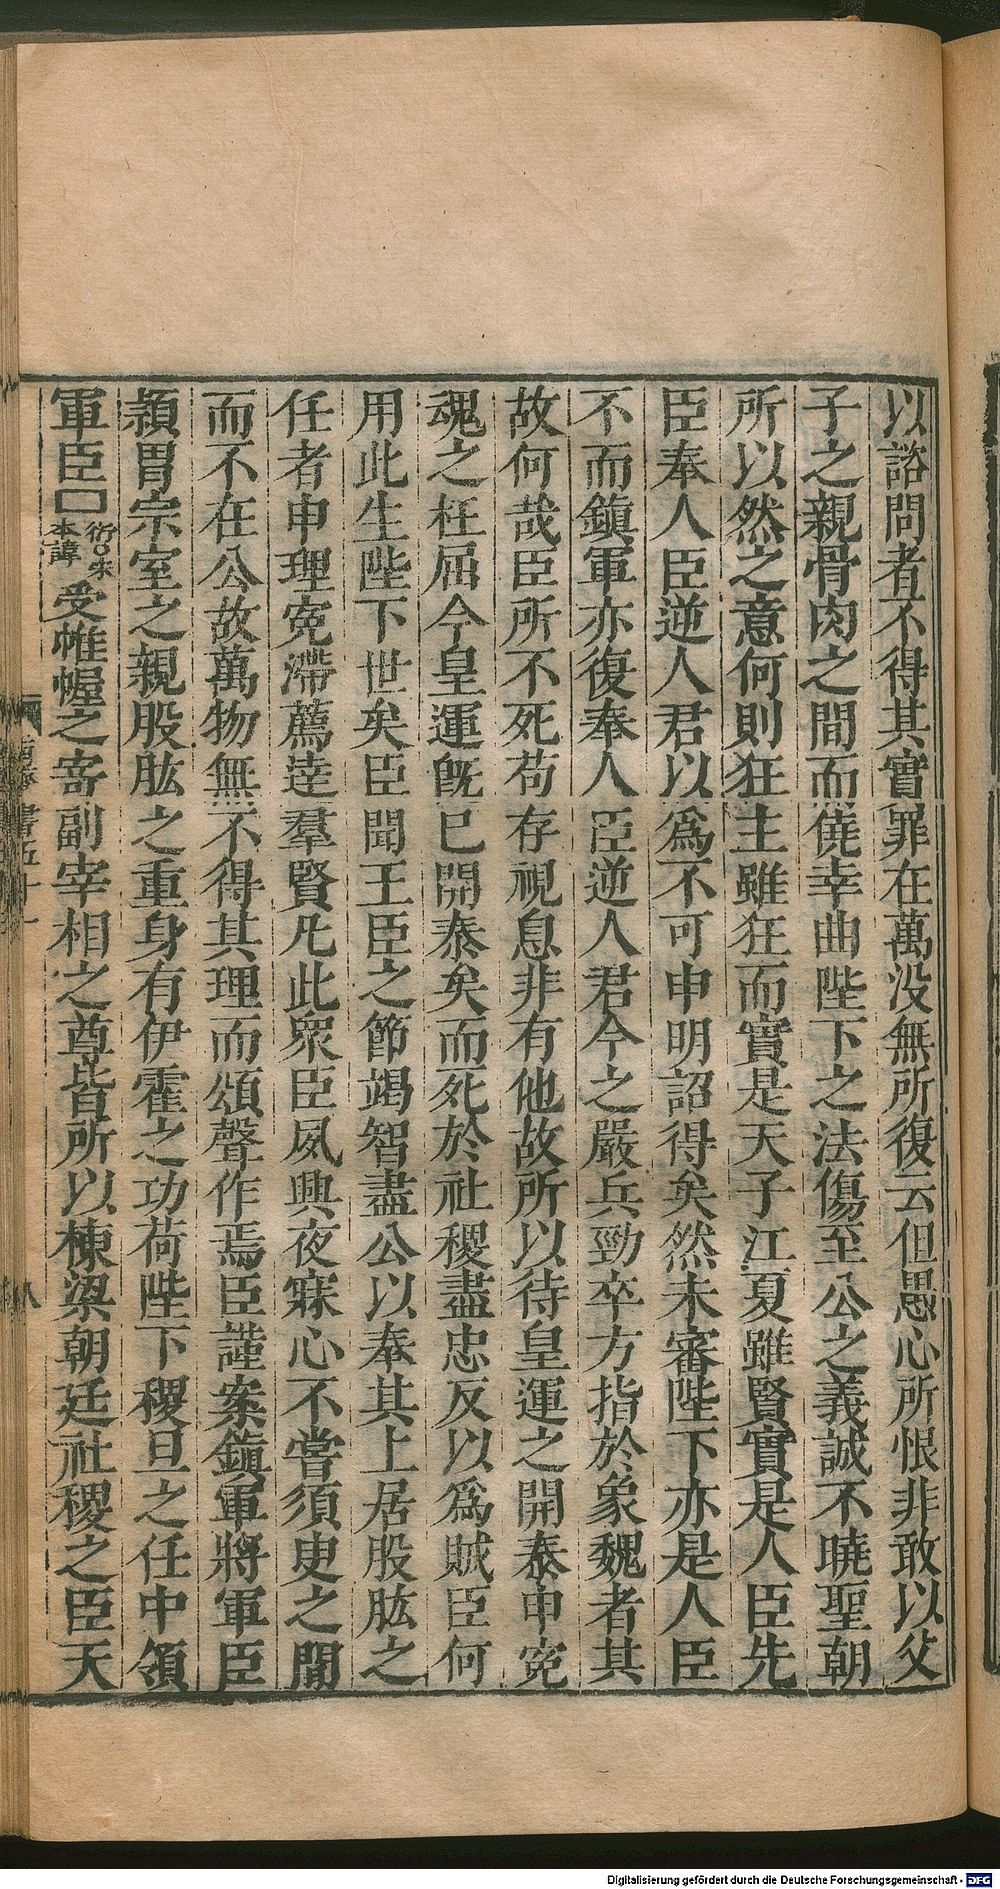 以諮問者不得其實罪在萬没無所復云但愚心所恨非敢以父
子之親骨肉之間而僥幸曲陛下之法傷至公之義誠不曉聖朝
所以然之意何則狂主雖狂而實是天子江夏雖賢實是人臣先
臣奉人臣逆人君以爲不可申明詔得矣然未審陛下亦是人臣
不而鎭軍亦復奉人臣逆人君今之嚴兵勁卒方指於象魏者其
故何哉臣所不死苟存視息非有他故所以待皇運之開泰申寃
魂之枉屈今皇運旣已開泰矣而死於社稷盡忠反以爲賊臣何
用此生陛下世矣臣聞王臣之節竭智盡公以奉其上居股肱之
任者申理寃滯薦逹羣賢凡此衆臣夙興夜寐心不嘗須臾之間
而不在公故萬物無不得其理而頌聲作焉臣謹案鎭軍將軍臣
頴胄宗室之親股肱之重身有伊霍之功荷陛下稷旦之任中領
軍臣□衍○宋本諱受帷幄之寄副宰相之尊皆所以棟梁朝廷社稷之臣天
Digitalisierung gefördert durch die Deutsche Forschungsgemeinschaft - DFG